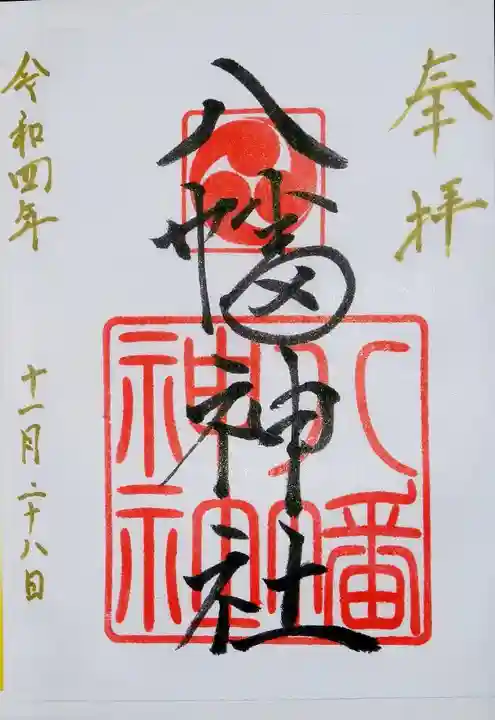 奉拝
八幡神社
八幡神社
令和四年
十一月二十八日